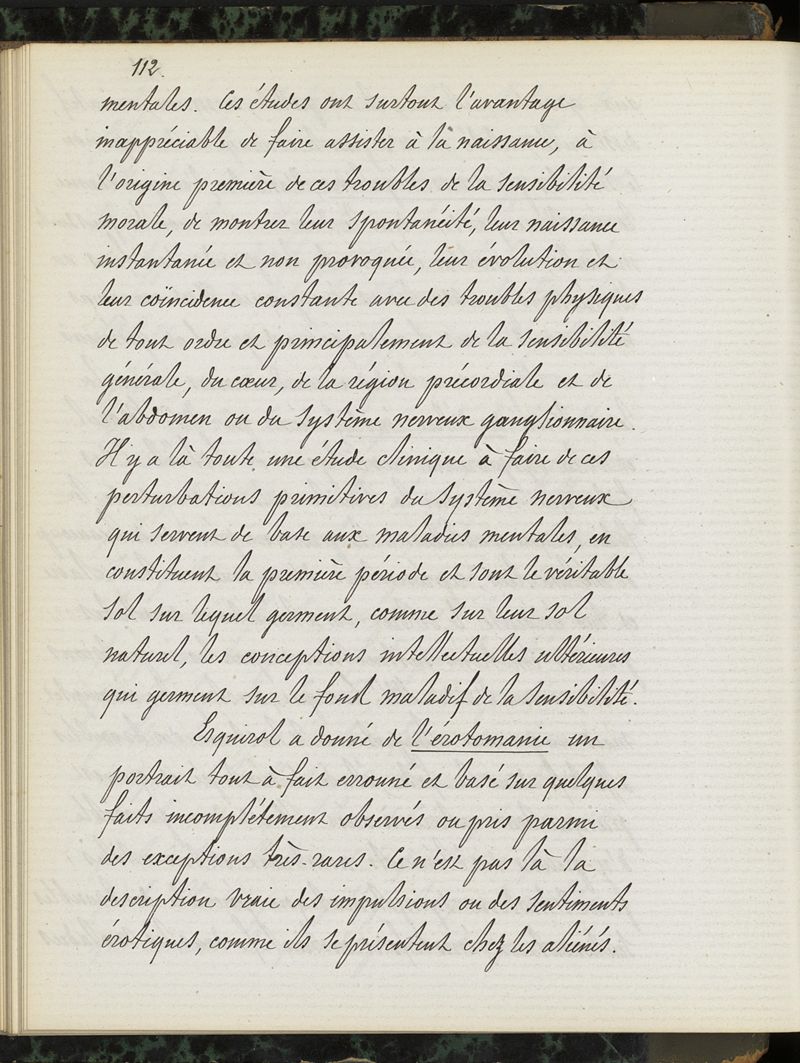 112.
mentales. Ces études ont surtout l'avantage
inappréciable de faire assister à la naissance, à
l'origine première de ces troubles de la sensibilité
morale, de montrer leur spontanéité, leur naissance
instantanée et non provoquée, leur évolution et
leur coïncidence constante avec des troubles physiques
de tout ordre et principalement de la sensibilité
générale, du cœur, de la région précordiale et de
l'abdomen ou du système nerveux ganglionnaire.
Il y a là toute une étude clinique à faire de ces
perturbations primitives du système nerveux
qui servent de base aux maladies mentales, en
constituent la première période et sont le véritable
sol sur lequel germent, comme sur leur sol
naturel, les conceptions intellectuelles ultérieures
qui germent sur le fond maladif de la sensibilité.
Esquirol a donné de l'érotomanie un
portrait tout à fait erronné et basé sur quelques
faits incomplétement observés ou pris parmi
des exceptions très-rares. Ce n'est pas là la
description vraie des impulsions ou des sentiments
érotiques, comme ils se présentent chez les aliénés.